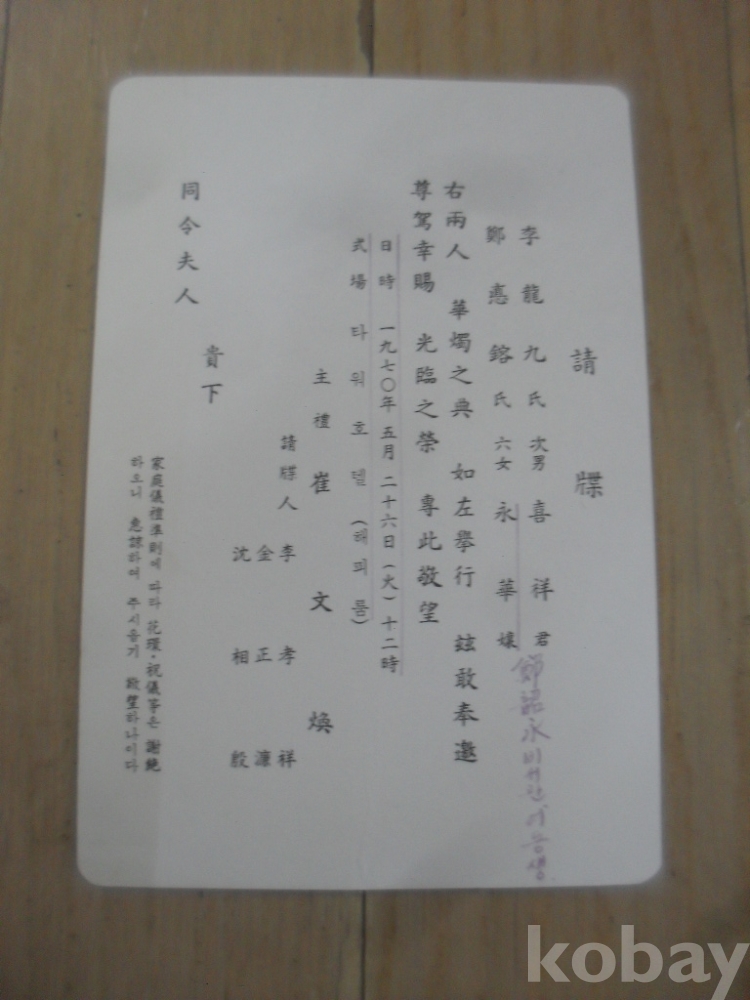 請牒
李龍九氏 次男 喜祥君
鄭憙鎔氏 六女 永華孃
鄭韶永비서관여동생
右兩人 華燭之典 如左擧行 玆敢奉邀
尊駕幸賜 光臨之榮 專此敬望
日時 一九七〇年五月二十六日(火)十二時
式場 타워호텔(해피룸)
主禮 崔文煥
請牒人 李孝祥
金正濂
沈相毅
同令夫人 貴下
家庭儀禮準則에 따라 花環·祝儀等은 謝絶
하오니 惠諒하여 주시옵기 敬望하나이다
kobay